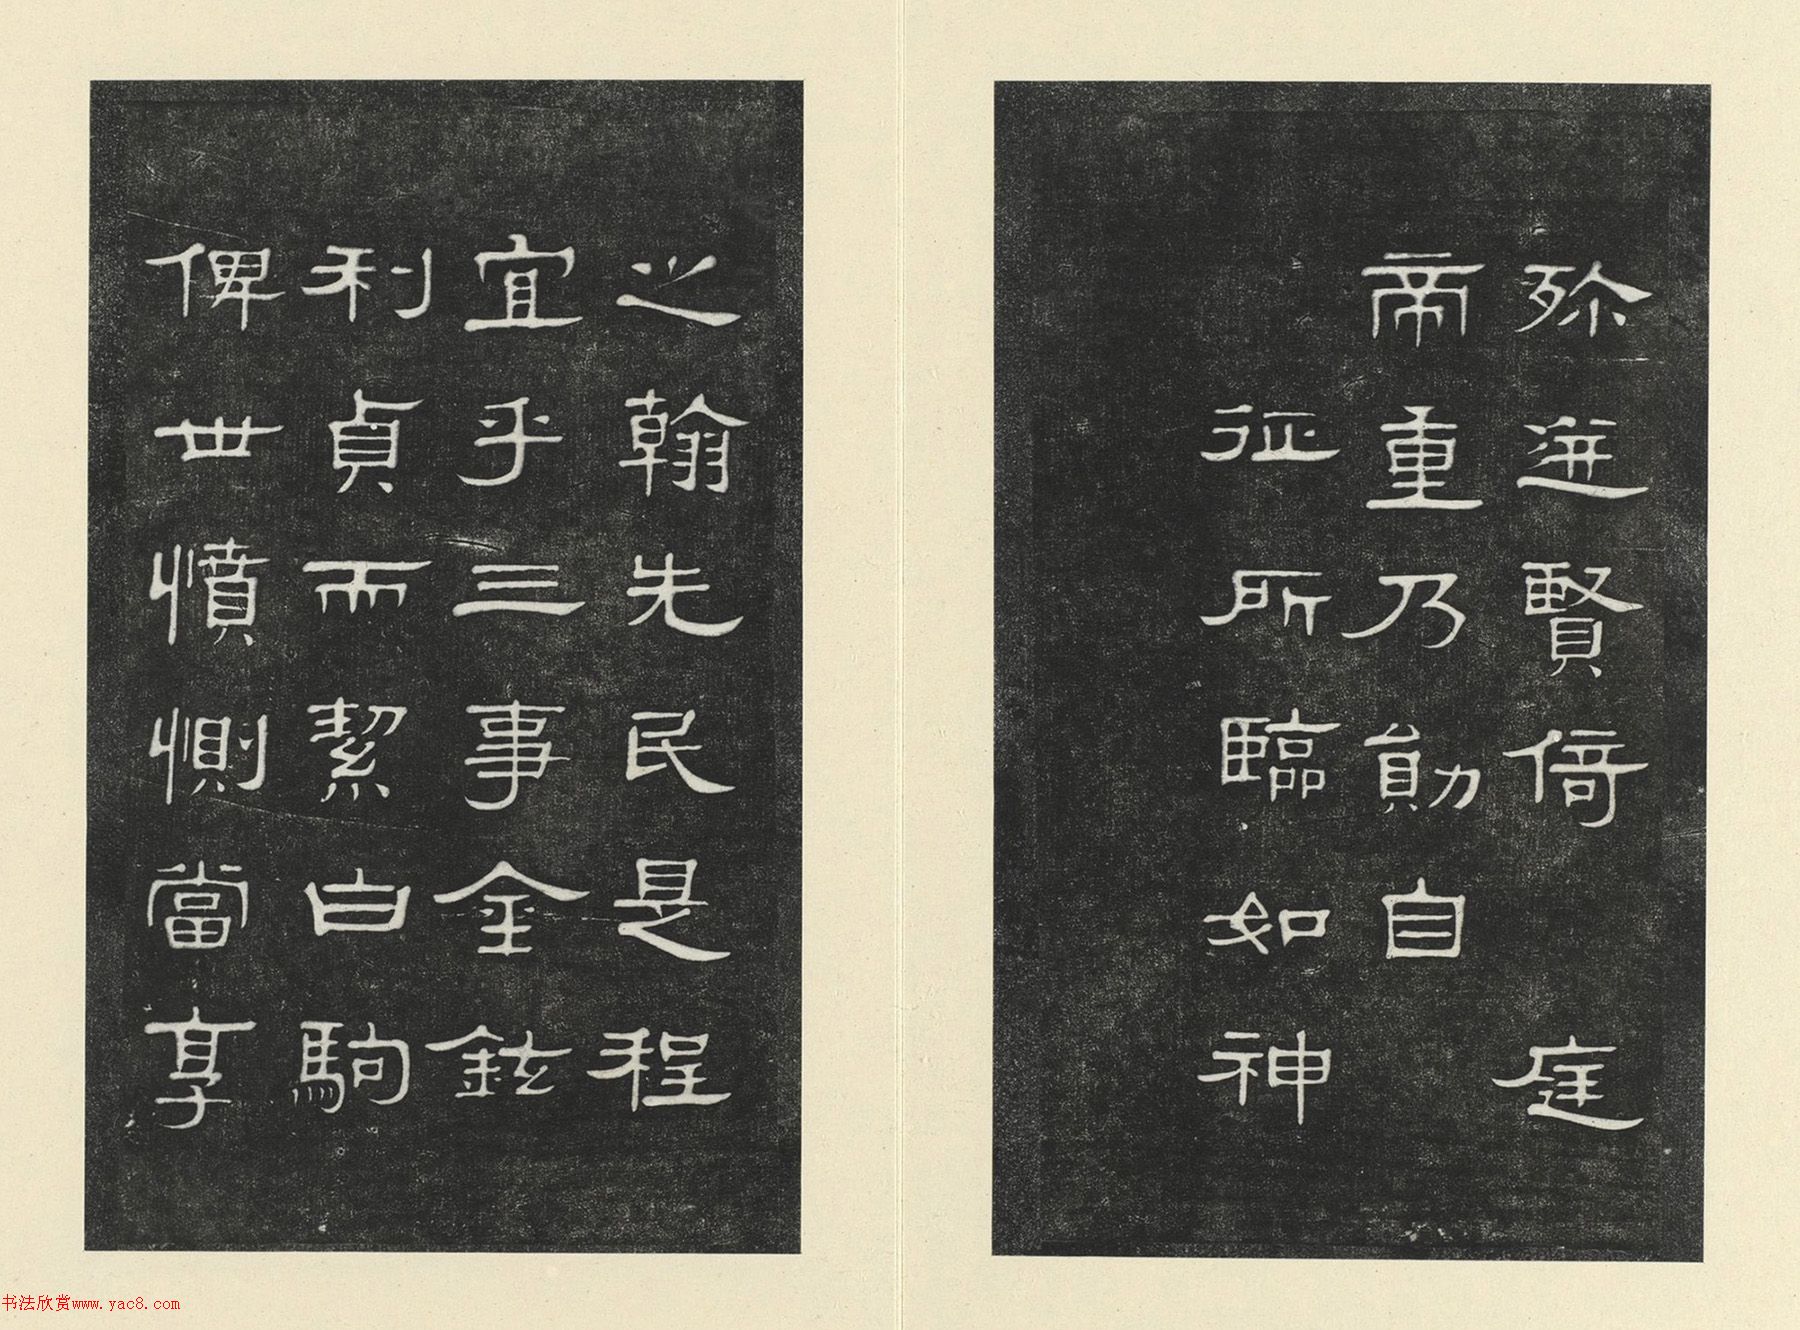 殄迸賢倚庭
帝重乃勛自
征所臨如神
之翰先民是程
宜乎三事金鉉
利貞而絜白駒
俾世憤惻當享
书法欣赏www.yac8.com